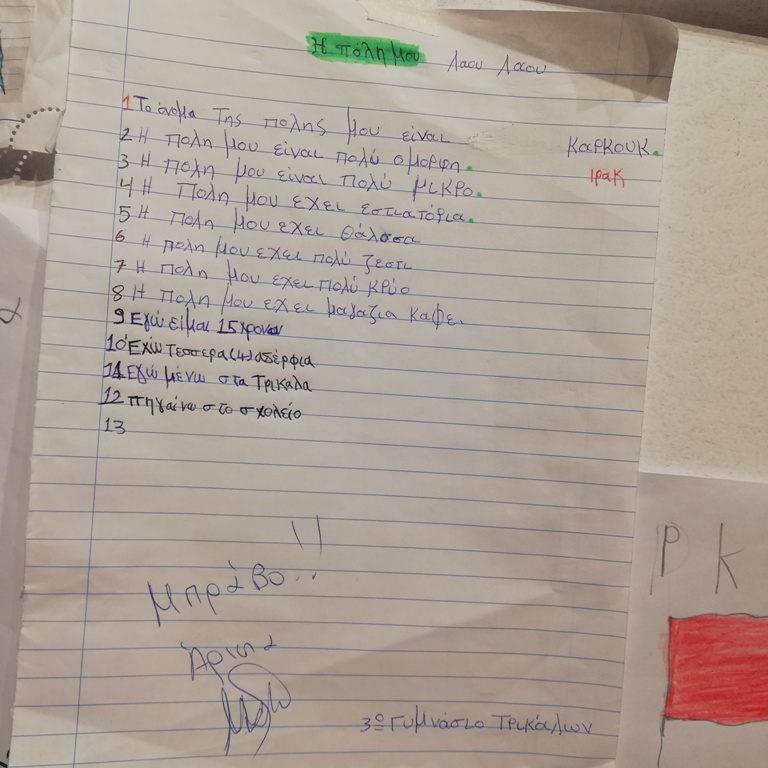 Η πολη μου Λαου Λαου
1 Το όνομα της πολης μου είναι Καρκουκ.
Ιρακ
2 Η πολη μου είναι πολύ ομορφη.
3 Η πολη μου είναι πολύ μικρο.
4 Η πολη μου εχει εστιατόρια.
5 Η πολη μου εχει θάλασσα
6 Η πολη μου εχει πολύ ζεστι
7 Η πολη μου εχει πολύ κρύο
8 Η πολη μου εχει μαγαζια καφε.
9 Εγώ είμαι 15 χρονων
10 Έχω τεσσερα (4) αδέρφια
11 Εγώ μένω στα Τρικαλα
12 πηγαίνω στο σχολείο
13
Μπράβο!!
Άριστα
3º Γυμνάσιο Τρικάλων
Ρ k